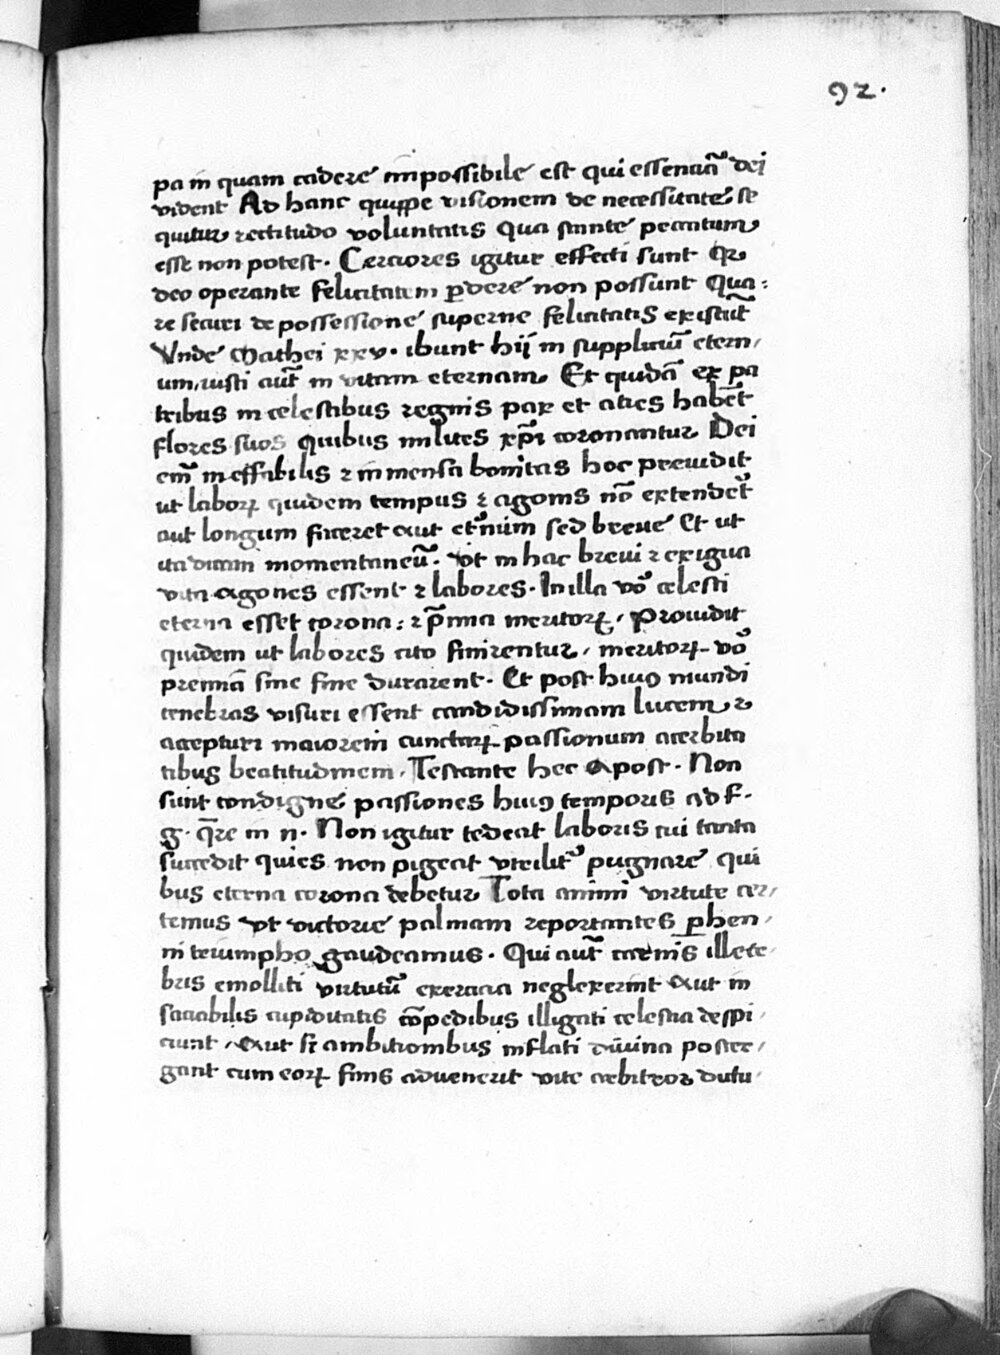 92.
pa in quam cadere impossibile est qui essenciā dei
vident Ad hanc quippe visionem de necessitate se
quitur rectitudo voluntatis qua stante peccatum
esse non potest. Cerciores igitur effecti sunt qꝛ
deo operante felicitatem ꝑdere non possunt Qua:
re securi de possessione superne felicitatis existūt
Vnde Mathei xxv. ibunt hij in suppliciū etern/
um, iusti aūt in vitam eternam Et quidā ex pa
tribus in celestibus regnis pax et acies habēt
flores suos quibus milites xp̄i coronantur Dei
em̄ ineffabilis ⁊ inmensa bonitas hoc preuidit
ut laboꝝ quidem tempus ⁊ agonis nō extendet᷑
aut longum faceret aut et᷑num sed breue Et ut
ita dicam momentaneū. vt in hac breui ⁊ exigua
vita agones essent ⁊ labores. In illa vō celesti
eterna esset corona: ⁊ p̄mia meritoꝝ. Prouidit
quidem ut labores cito finirentur, meritoꝝ vō
premiā sine fine durarent. Et post huiꝰ mundi
tenebras visuri essent candidissimam lucem ⁊
accepturi maiorem cunctaꝝ passionum acerbita
tibus beatitudinem. Testante hec apost. Non
sunt condigne passiones huiꝰ temporis ad f.
g. q̄re in n. Non igitur tedeat laboris cui tanta
succedit quies non pigeat virilit᷑ pugnare qui
bus eterna corona debetur Tota animi virtute cer/
temus vt victorie palmam reportantes ꝑhen/
ni triumpho gaudeamus. Qui aūt carnis illece/
bris emolliti virtutū exercicia neglexerint aut in
saciabilis cupiditatis cōpedibus illigati celestia despi/
ciunt, aut si ambitionibus inflati diuina poster/
gant cum eoꝝ finis aduenerit vite arbitror dulci/